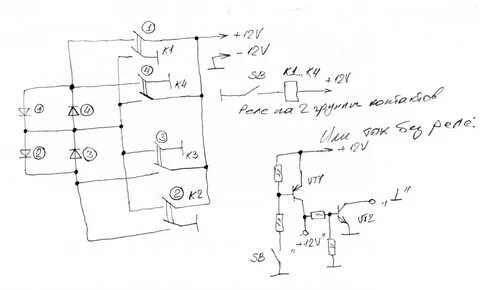 ①
+12V
K1
-12V
④
SB
K1...K4
K4
+12V
Реле на 2 группы контактов
① ④
Или так без реле:
② ③
③
+12V
K3
VT1
②
K2
"⊥"
VT2
"+12V"
SB